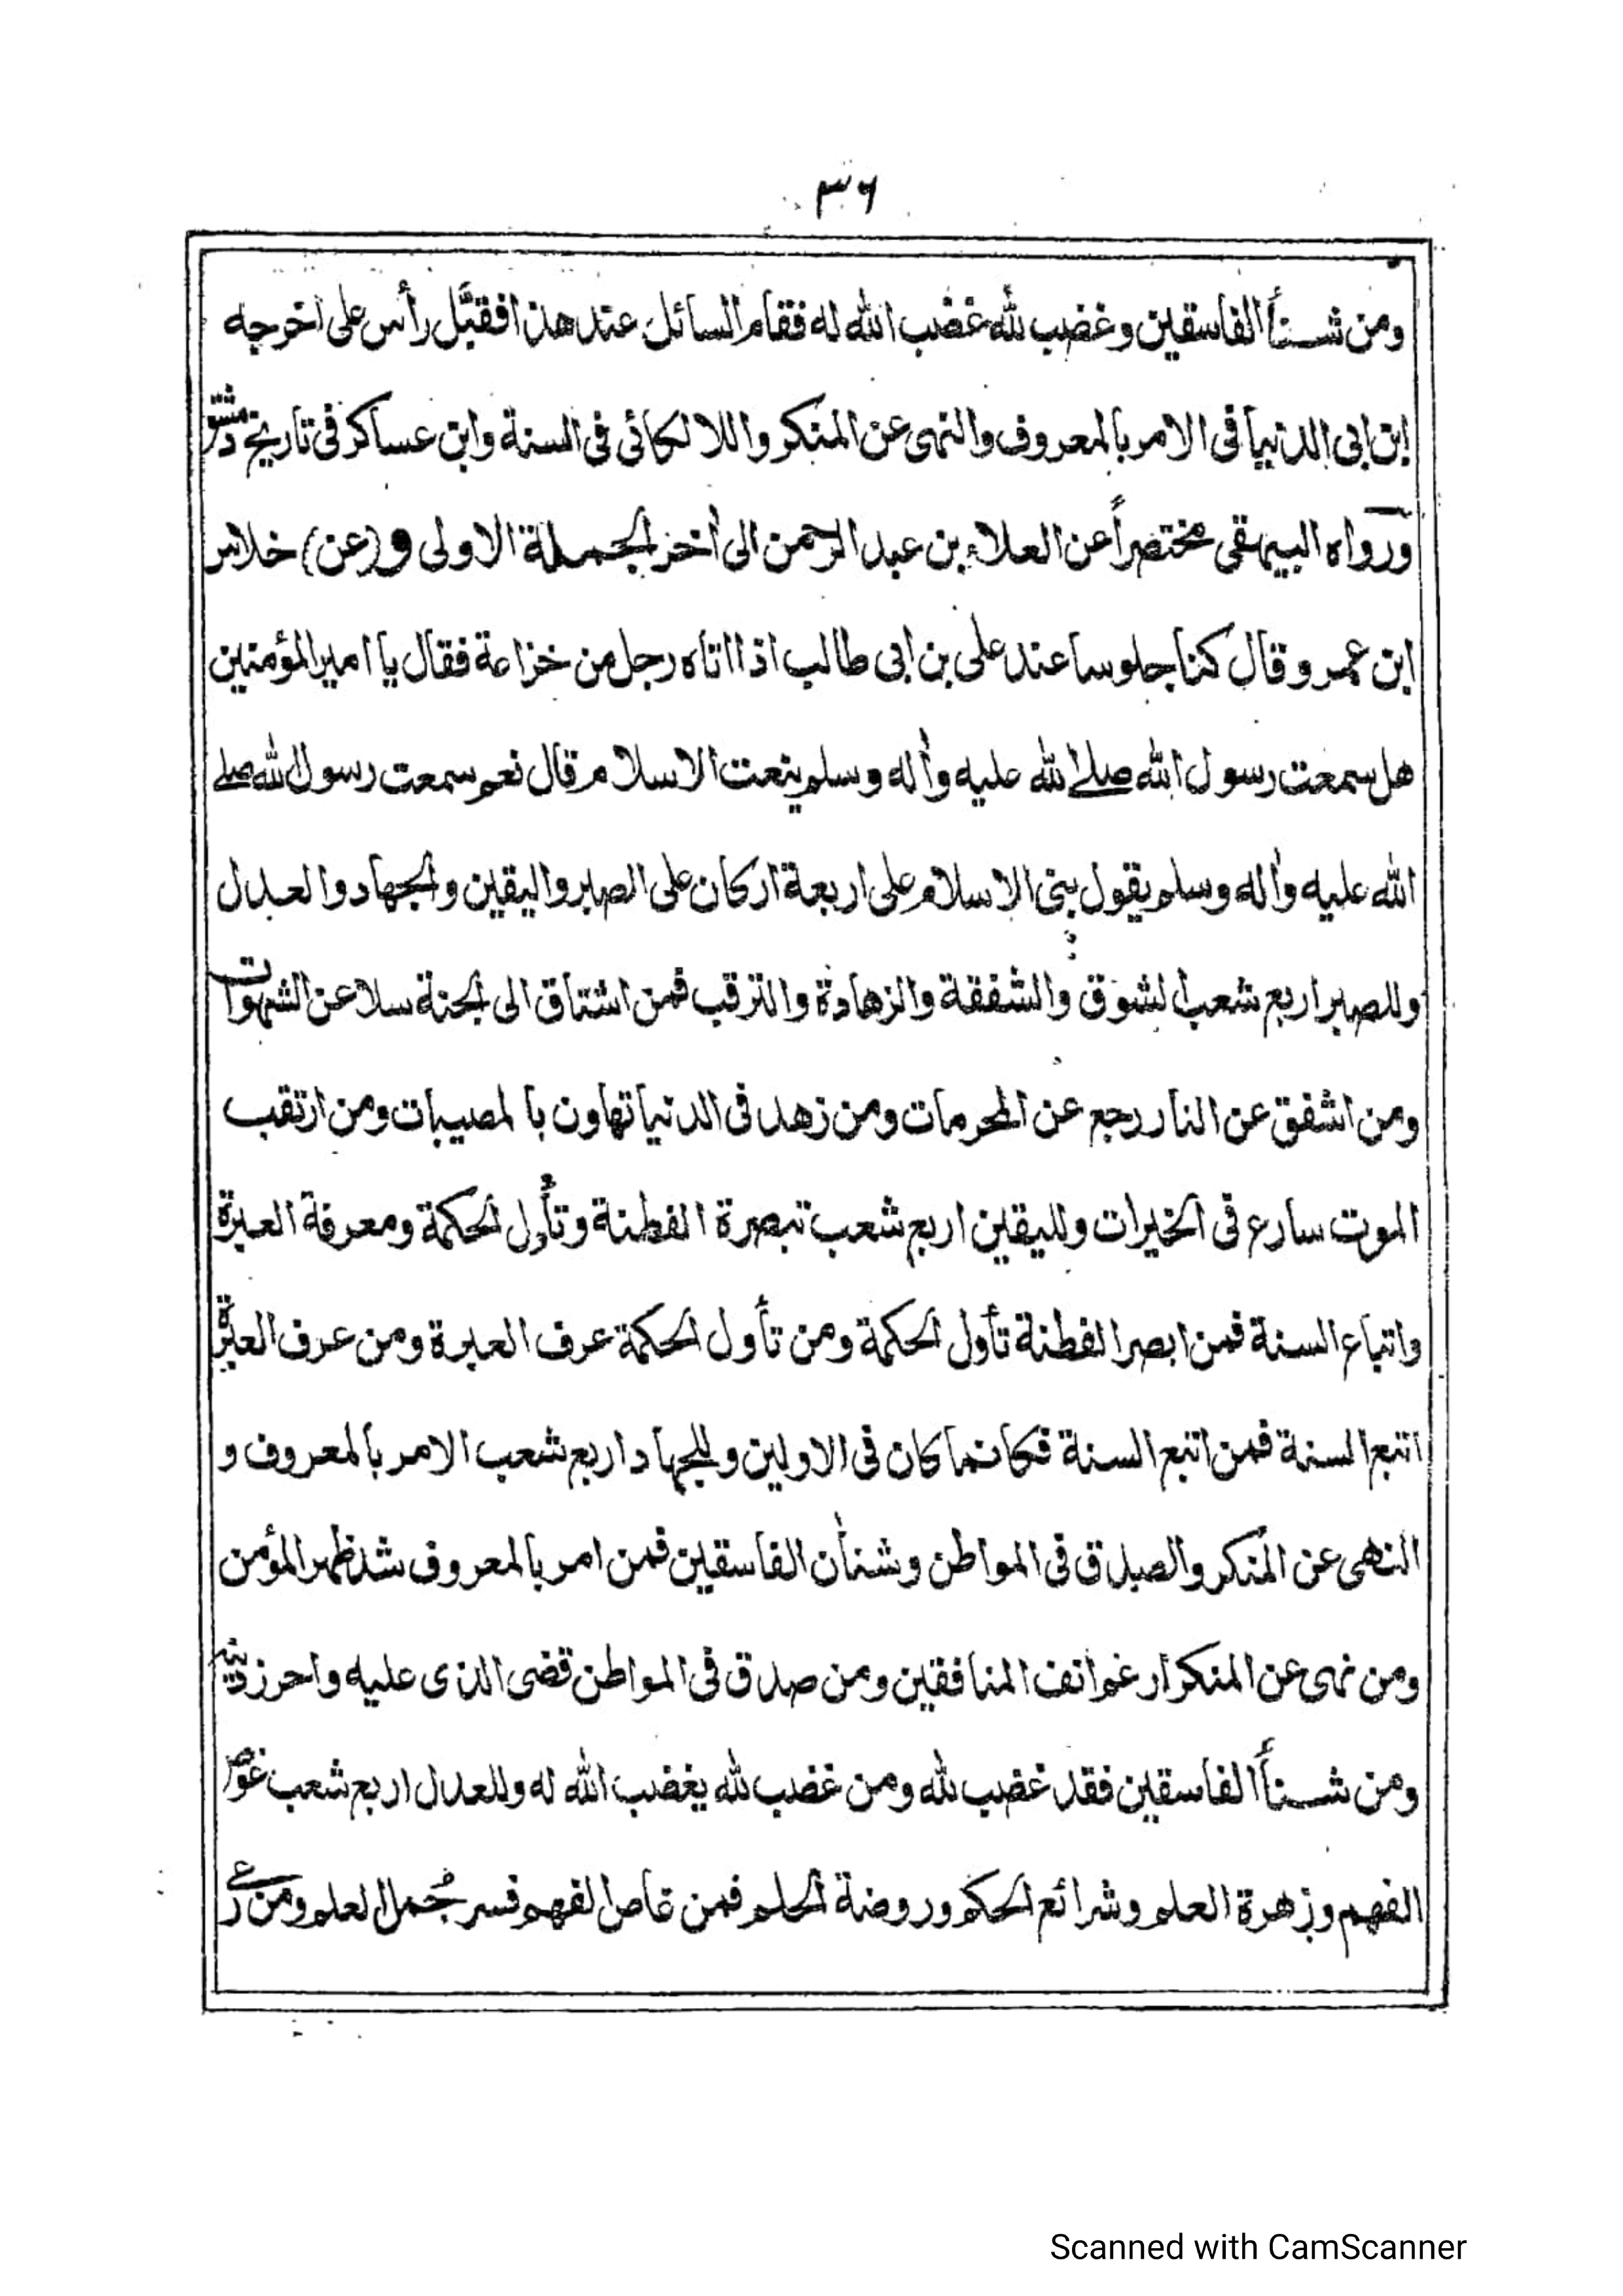 ٣٦
ومن شنأ الفاسقين وغضب لله غضب الله له فقام السائل عند هذا فقبّل رأس على اخرجه
ابن ابى الدنيا فى الامر بالمعروف والنهى عن المنكر واللالكائى فى السنة وابن عساكر فى تاريخ دمشق
ورواه البيهقى مختصراً عن العلاء بن عبد الرحمن الى أخر الجملة الاولى و(عن) خلاس
ابن عمرو قال كنا جلوسا عند على بن ابى طالب اذا اتاه رجل من خزاعة فقال يا امير المؤمنين
هل سمعت رسول الله صلے الله عليه وأله وسلم ينعت الاسلام قال نعم سمعت رسول الله صلے
الله عليه وأله وسلم يقول بنى الاسلام على اربعة اركان على الصبر واليقين والجهاد والعدل
وللصبر اربع شعب الشوق والشفقة والزهادة والترقب فمن اشتاق الى الجنة سلا عن الشهوات
ومن اشفق عن النار رجع عن المحرمات ومن زهد فى الدنيا تهاون بالمصيبات ومن ارتقب
الموت سارع فى الخيرات ولليقين اربع شعب تبصرة الفطنة وتأول الحكمة ومعرفة العبرة
واتباع السنة فمن ابصر الفطنة تأول الحكمة ومن تأول الحكمة عرف العبرة ومن عرف العبرة
اتبع السنة فمن اتبع السنة فكانما كان فى الاولين وللجهاد اربع شعب الامر بالمعروف و
النهى عن المنكر والصدق فى المواطن وشنأن الفاسقين فمن امر بالمعروف شد ظهر المؤمن
ومن نهى عن المنكر ارغم انف المنافقين ومن صدق فى المواطن قضى الذى عليه واحرز دينه
ومن شنأ الفاسقين فقد غضب لله ومن غضب لله يغضب الله له وللعدل اربع شعب غوص
الفهم وزهرة العلم وشرائع الحكم وروضة الحلم فمن غاص الفهم فسر جُمل العلم ومن رعى
Scanned with CamScanner